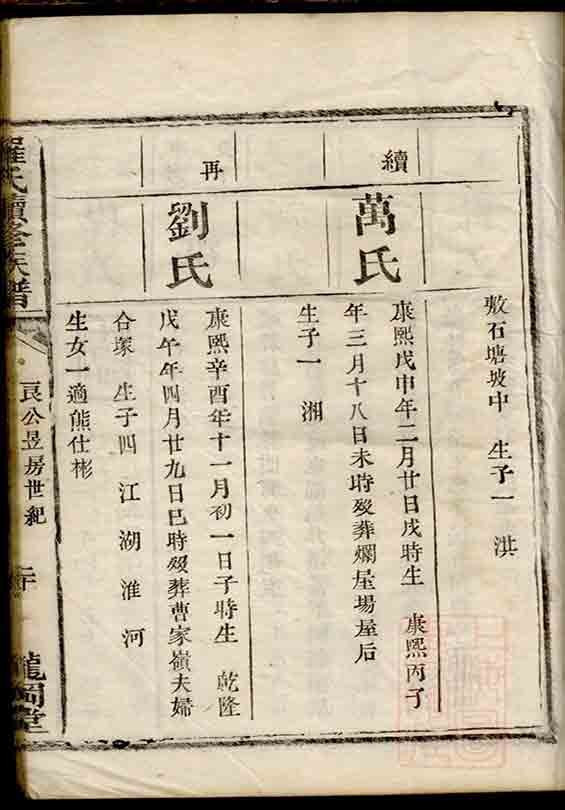 敷石塘坡中　生子一　淇
續　萬氏
康熙戊申年二月廿日戌時生　康熙丙子
年三月十八日未時歿葬爛屋場屋后
生子一　湘
再　劉氏
康熙辛酉年十一月初一日子時生　乾隆
戊午年四月廿九日巳時歿葬曹家嶺夫婦
合塚　生子四　江　湖　淮　河
生女一適熊仕彬
羅氏續修族譜
良公昱房世紀
龍岡堂